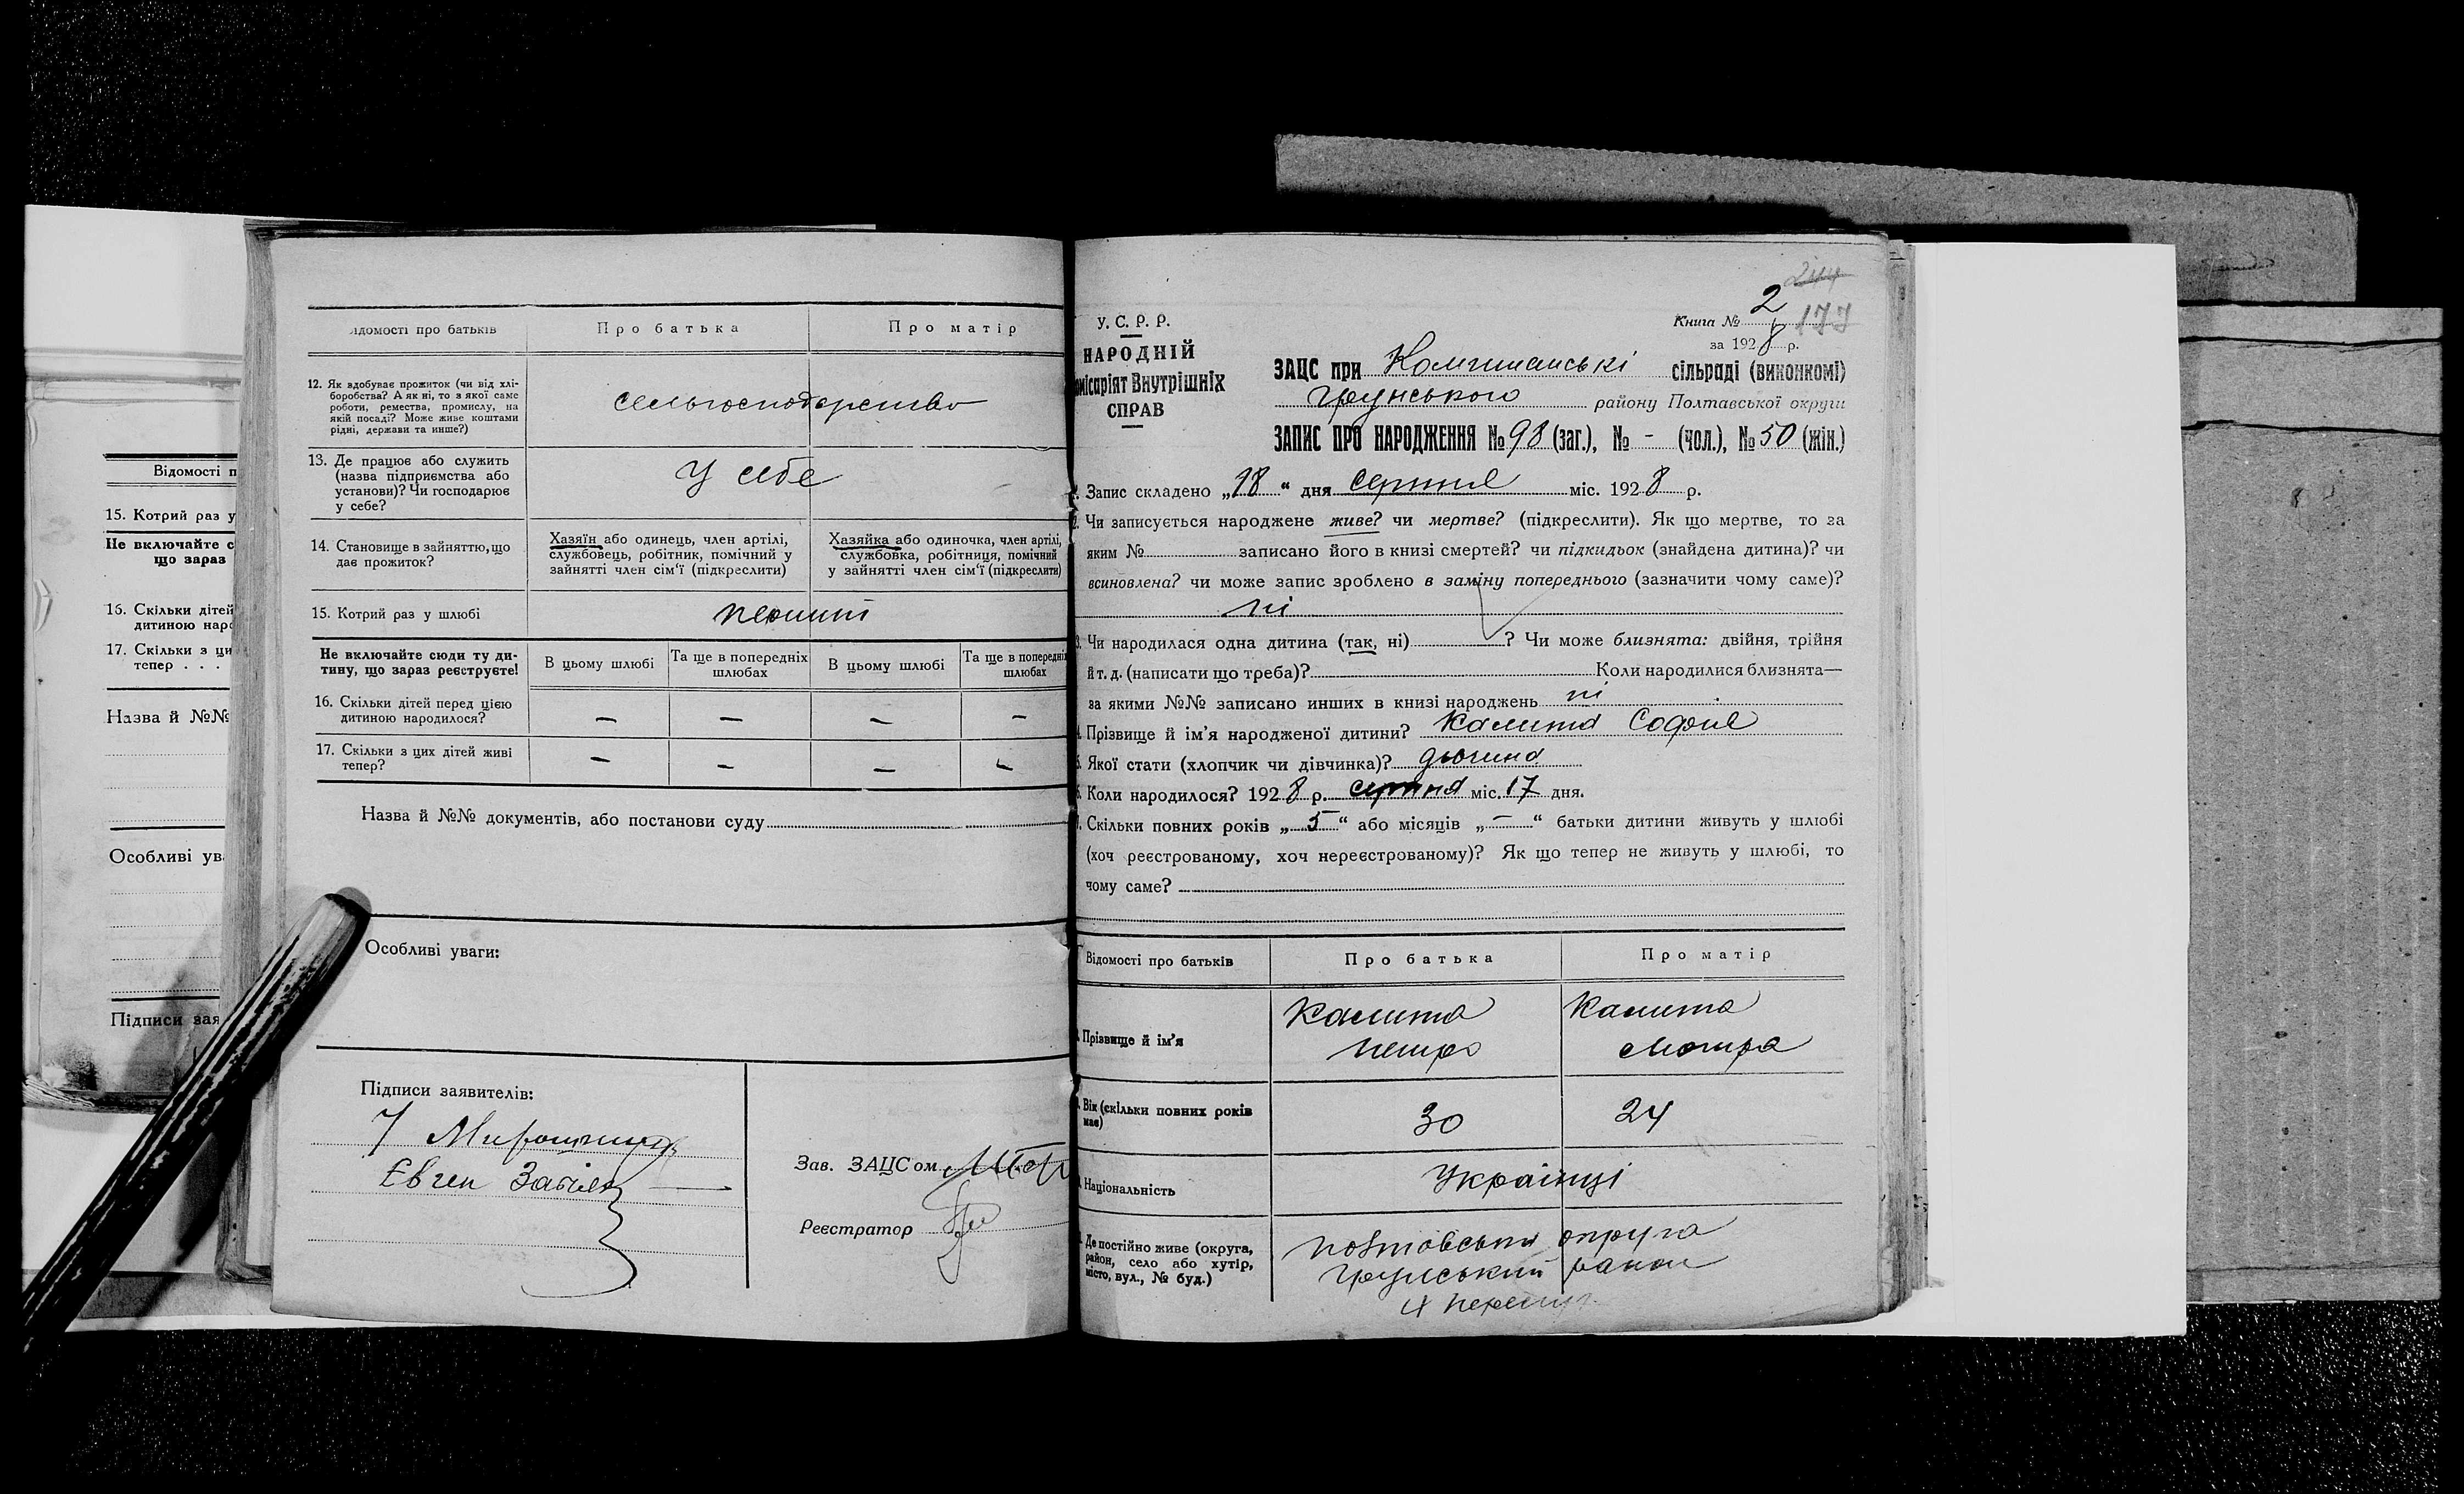 Відомості п
15. Котрий раз у
Не включайте с
що зараз
16. Скільки дітей
дитиною наро
17. Скільки з ци
тепер . . .
Назва й №№
Особливі ув
Підписи зая
ідомості про батьків
Про батька
Про матір
12. Як здобуває прожиток (чи від хлі-
боробства? А як ні, то з якої саме
роботи, ремества, промислу, на
якій посаді? Може живе коштами
рідні, держави та инше?)
сельгосподарство
13. Де працює або служить
(назва підприємства або
установи)? Чи господарює
у себе?
У себе
14. Становище в зайняттю, що
дає прожиток?
Хазяїн або одинець, член артілі,
службовець, робітник, помічний у
зайнятті член сім'ї (підкреслити)
Хазяйка або одиночка, член артілі,
службовка, робітниця, помічний
у зайнятті член сім'ї (підкреслити)
15. Котрий раз у шлюбі
перший
Не включайте сюди ту ди-
тину, що зараз реєструєте!
В цьому шлюбі
Та ще в попередніх
шлюбах
В цьому шлюбі
Та ще в попередніх
шлюбах
16. Скільки дітей перед цією
дитиною народилося?
— — — —
17. Скільки з цих дітей живі
тепер?
— — — —
Назва й №№ документів, або постанови суду
Особливі уваги:
Підписи заявителів:
Євген
Зав. ЗАЦСом
Реєстратор
244
177
У. С. Р. Р.
НАРОДНІЙ
омісаріят Внутрішніх
СПРАВ
Книга № 2
за 1928 р.
ЗАЦС при Комишанські сільраді (виконкомі)
Грунського району Полтавської округи
ЗАПИС ПРО НАРОДЖЕННЯ № 98 (заг.), № - (чол.), № 50 (жін.)
1. Запис складено „18" дня серпня міс. 1928 р.
2. Чи записується народжене живе? чи мертве? (підкреслити). Як що мертве, то за
яким № записано його в книзі смертей? чи підкидьок (знайдена дитина)? чи
всиновлена? чи може запис зроблено в заміну попереднього (зазначити чому саме)?
ні
3. Чи народилася одна дитина (так, ні) ? Чи може близнята: двійня, трійня
й т. д. (написати що треба)? Коли народилися близнята—
за якими №№ записано инших в книзі народжень ні
4. Прізвище й ім'я народженої дитини? Калита Софія
5. Якої стати (хлопчик чи дівчинка)? дівчина
6. Коли народилось? 1928 р. серпня міс. 17 дня.
7. Скільки повних років „5" або місяців „—" батьки дитини живуть у шлюбі
(хоч реєстрованому, хоч нереєстрованому)? Як що тепер не живуть у шлюбі, то
чому саме?
Відомості про батьків
Про батька
Про матір
Прізвище й ім'я
Калита
Петро
Калита
Мотря
Вік (скільки повних років
має)
30
24
Національність
Українці
Де постійно живе (округа,
район, село або хутір,
місто, вул., № буд.)
Полтавська округа
Грунський район